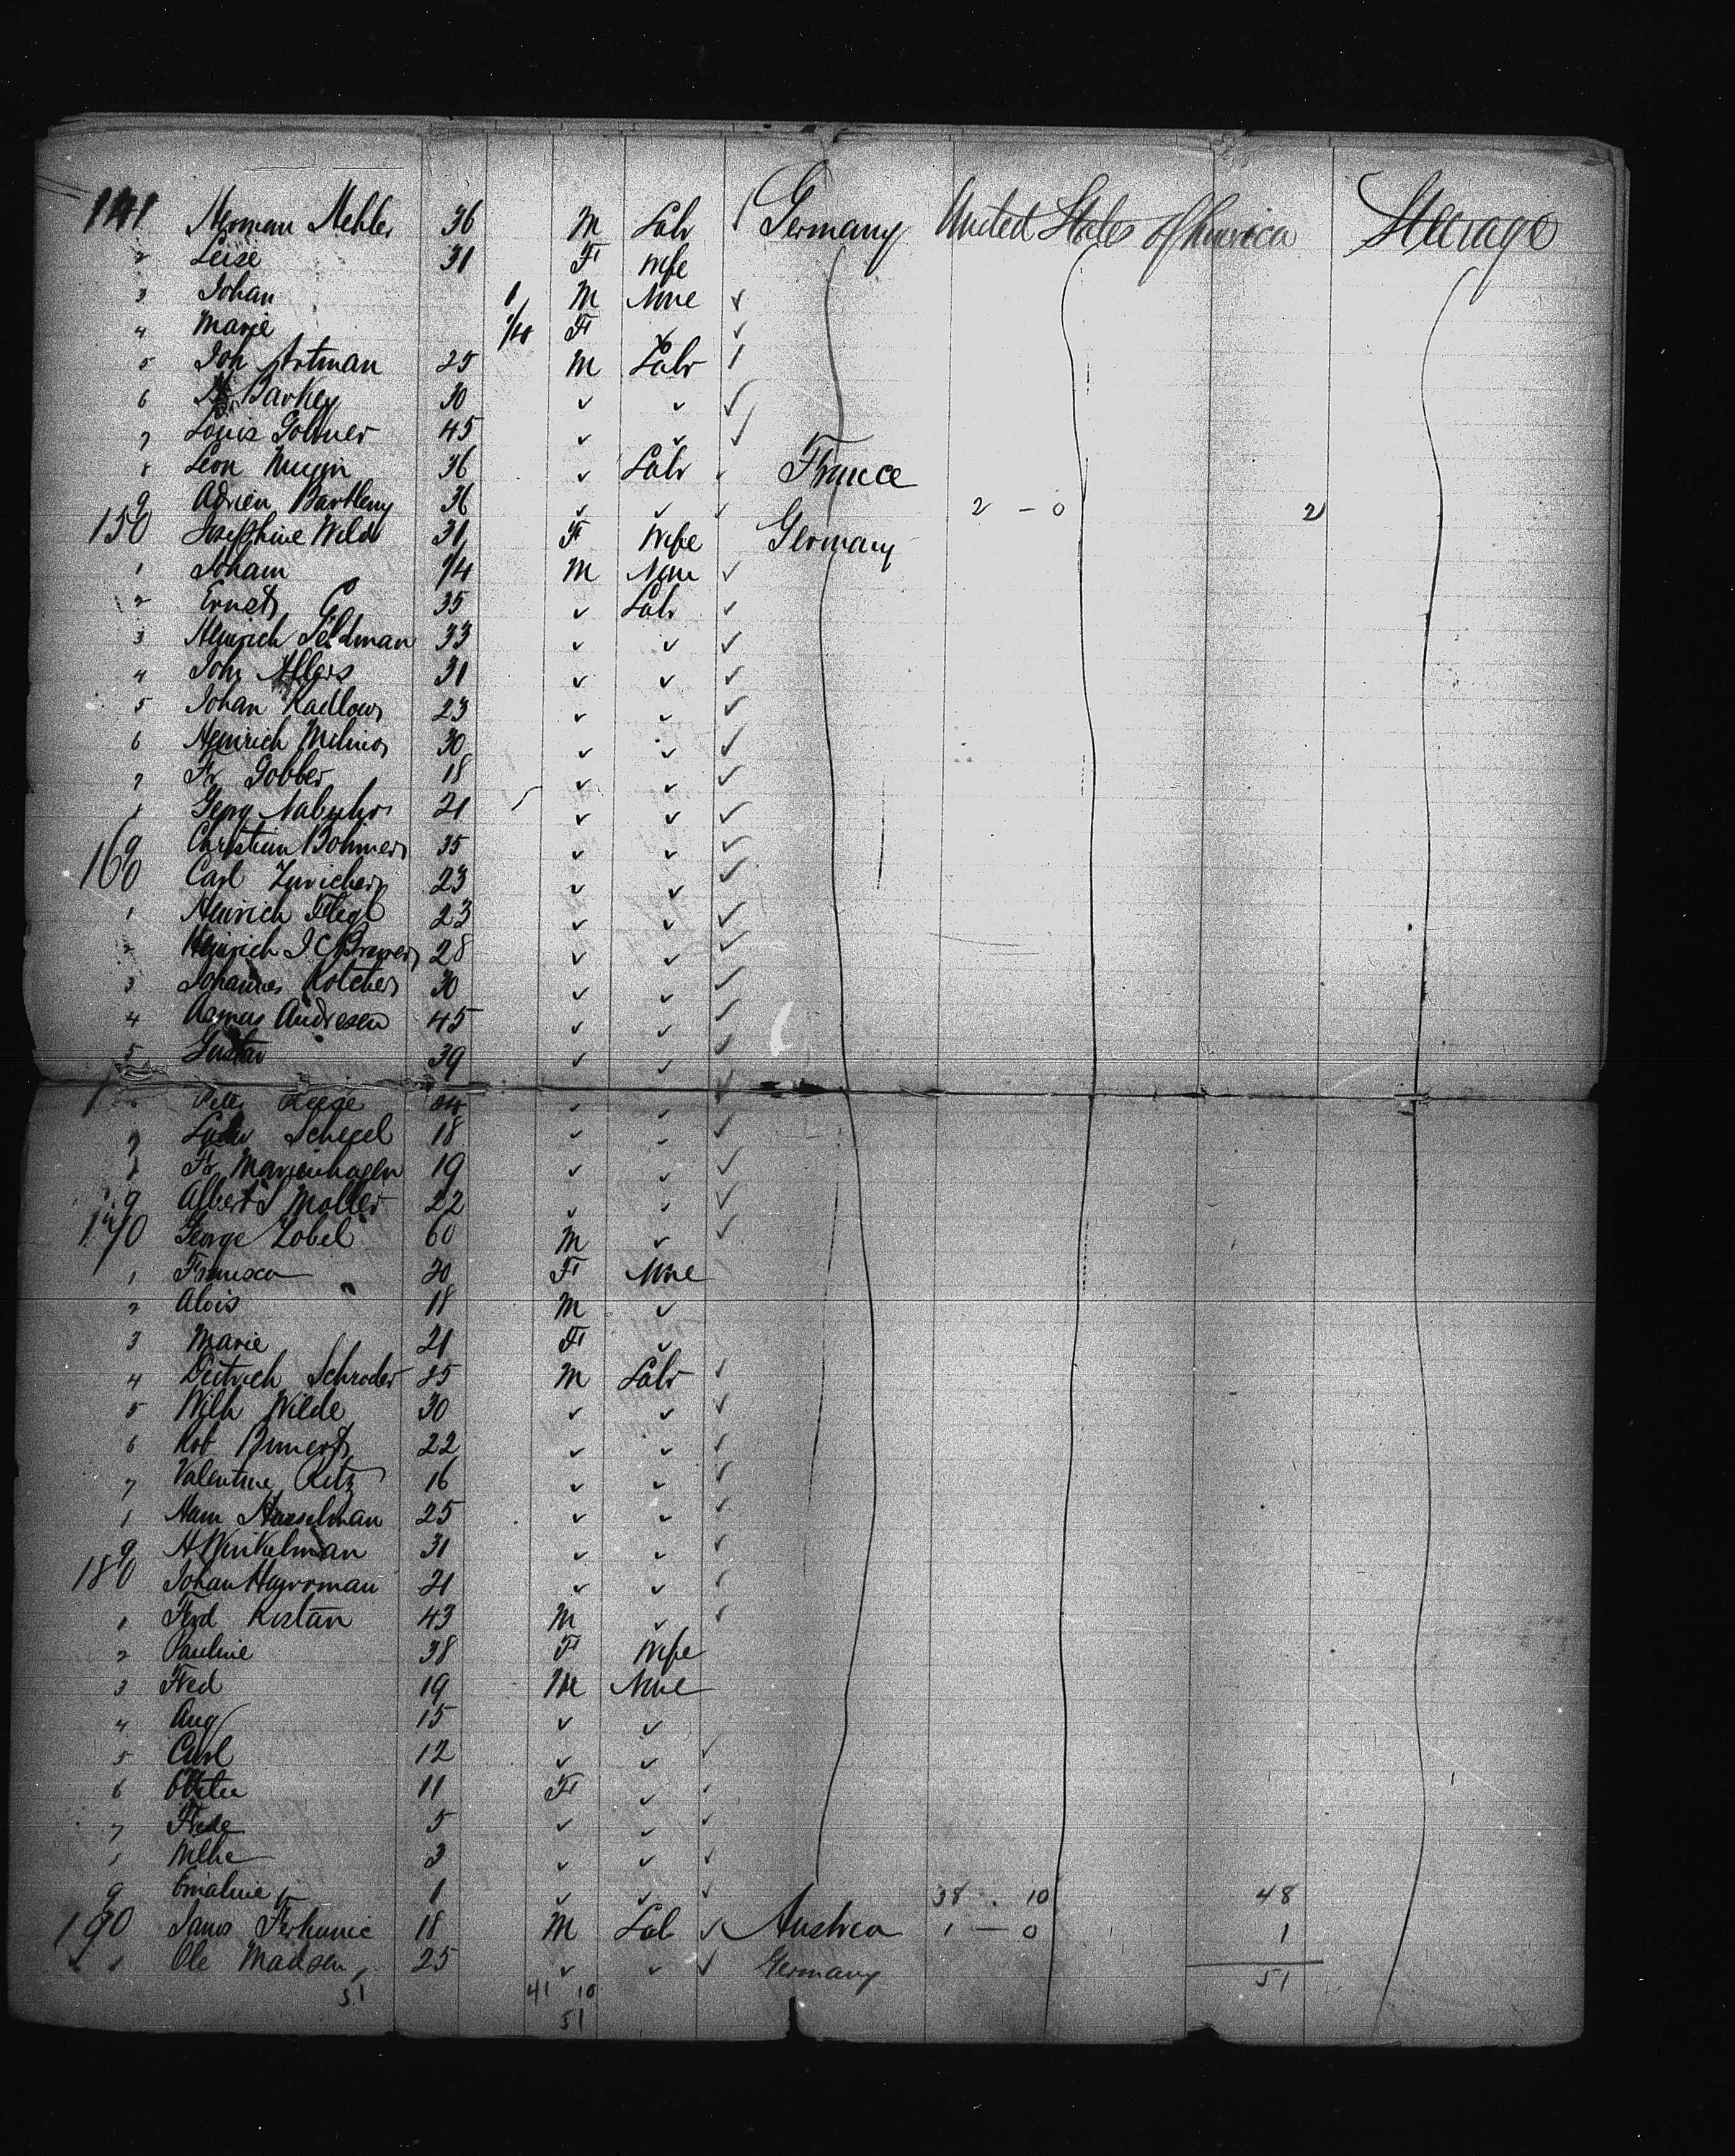 141 Herman Mehler 36 M Labr / Germany United States of America Steerage
2 Leise 31 F Wife
3 Johan 1 M None ✓
4 Marie 1/10 F ✓ ✓
5 Joh Artman 25 M Labr /
6 Barkey 30 ✓ ✓ ✓
7 Louis Goltner 45 ✓ ✓ ✓
8 Leon 36 ✓ Labr ✓ France
9 Adrien Bartleny 36 ✓ ✓ ✓ 2 - 0 2
150 Josephine Wild 31 F Wife Germany
1 Joham 1/4 M None ✓
2 Ernst 35 ✓ Labr ✓
3 Heinrich Feldman 33 ✓ ✓ ✓
4 Joh Ahlers 31 ✓ ✓ ✓
5 Johan Kadlow 23 ✓ ✓ ✓
6 Heinrich 30 ✓ ✓ ✓
7 Fr Gobber 18 ✓ ✓ ✓
8 Georg Nabuhr 21 ✓ ✓ ✓
9 Christian Bohmer 35 ✓ ✓ ✓
160 Carl Zuricher 23 ✓ ✓ ✓
1 Heinrich Flege 23 ✓ ✓ ✓
2 Heinrich J C Brewer 28 ✓ ✓ ✓
3 Johannes Kotcher 30 ✓ ✓ ✓
4 Asmus Andresen 45 ✓ ✓ ✓
5 Gustav 39 ✓ ✓ ✓
Peter Reese 24 ✓ ✓ ✓
7 Schegel 18 ✓ ✓ ✓
8 Fr Marienhagen 19 ✓ ✓ ✓
9 Albert Moller 22 ✓ ✓ ✓
170 George Zobel 60 M ✓ ✓
1 Francisca 20 F None
2 Alois 18 M ✓
3 Marie 21 F ✓
4 Dietrich Schroder 25 M Labr ✓
5 Wilh Wilde 30 ✓ ✓ ✓
6 Rob 22 ✓ ✓ ✓
7 Valentine Ritz 16 ✓ ✓ ✓
8 Herm Hasselman 25 ✓ ✓ ✓
9 H Winkelman 31 ✓ ✓ ✓
180 Johan Harroman 21 ✓ ✓ ✓
1 Ferd Kistan 43 M ✓ ✓
2 Pauline 38 F Wife
3 Fred 19 M None
4 Aug 15 ✓ ✓
5 Carl 12 ✓ ✓ ✓
6 11 F ✓ ✓
7 Frede 5 ✓ ✓ ✓
8 3 ✓ ✓ ✓
9 Emaline 1 ✓ ✓ ✓ 38 . 10 48
190 Janos 18 M Lab ✓ Austria 1 - 0 1
1 Ole Madsen 25 ✓ ✓ ✓ Germany
51 41 10 51
51